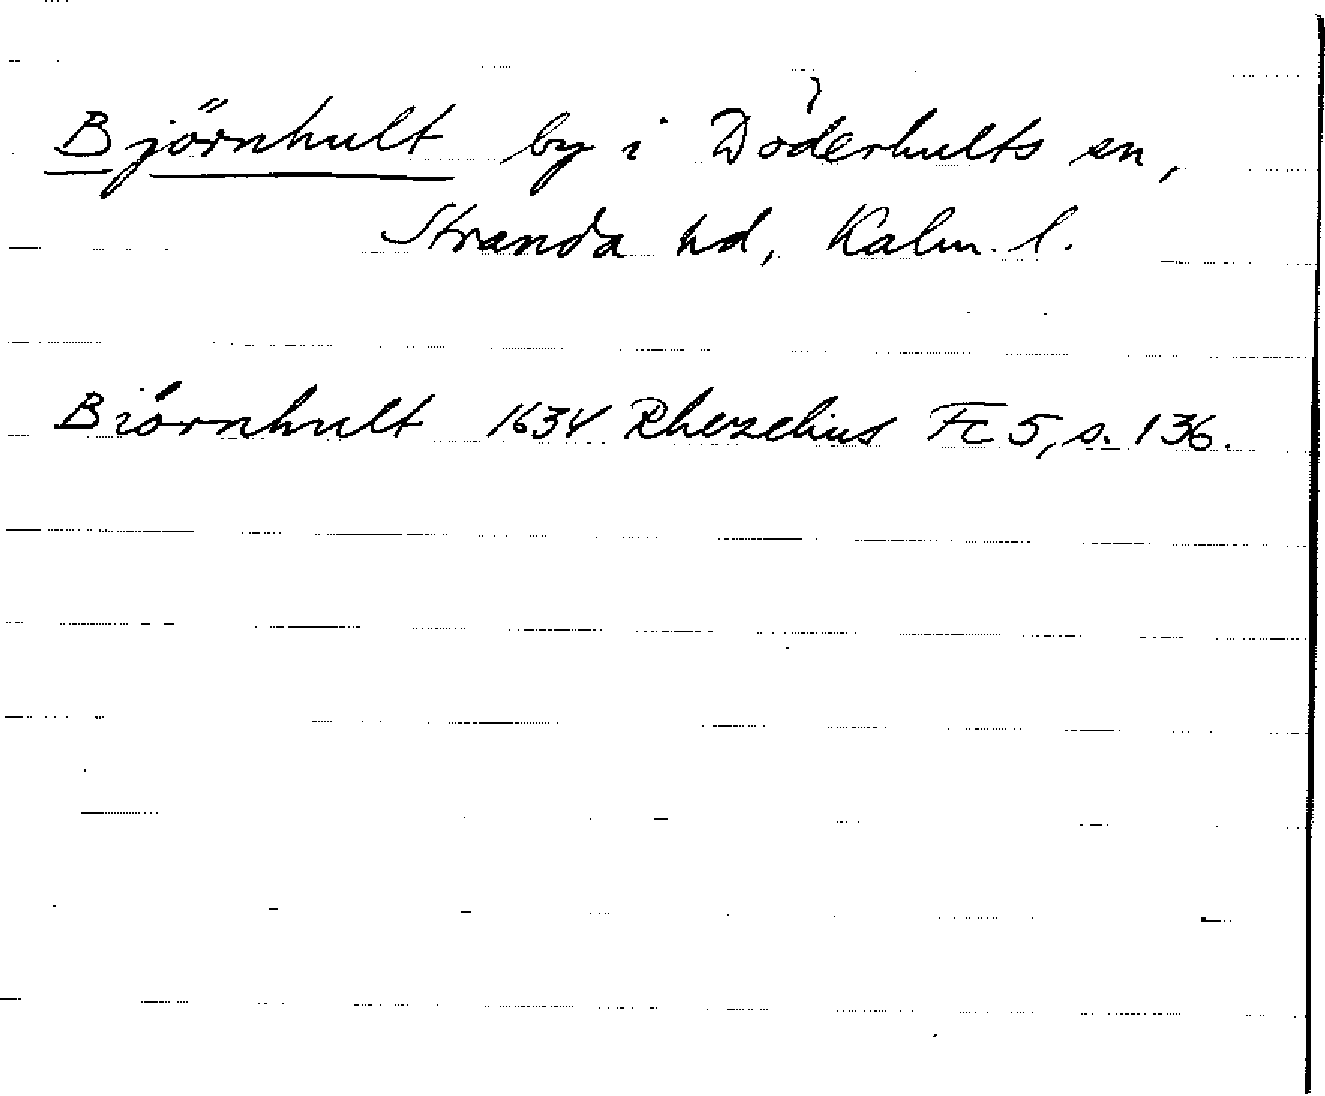 Björnhult by i Döderhults sn,
Stranda hd, Kalm. l.
Biörnhult 1634 Rhezelius Fc 5, s. 136.